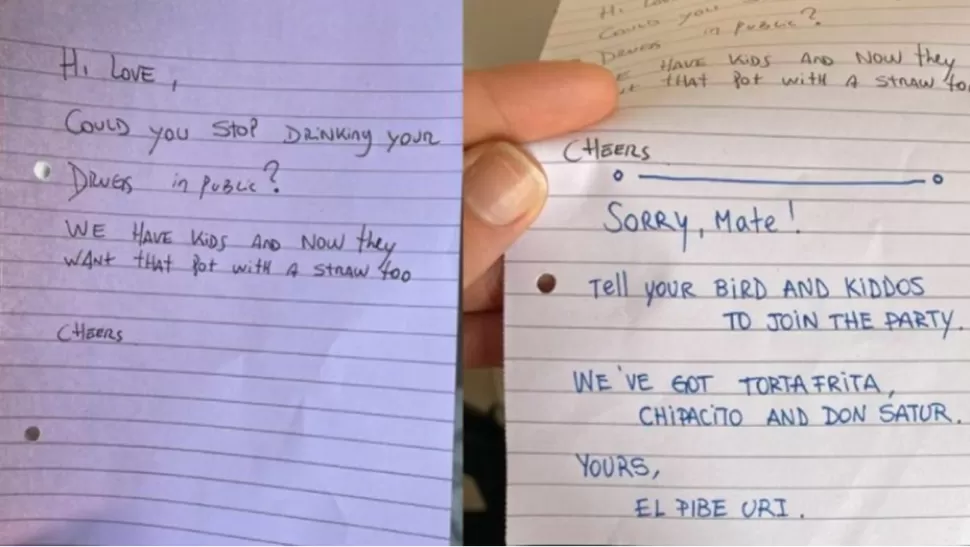 Hi LOVE,
COULD you STOP DRiNKiNg YOUR
DRUGS in PUBLIC?
WE HAVE KiDS AND NOW they
WANt tHAt Pot witH A StRAW too
CHEERS
Hi
COULD you
DRUGS in PUBLiC?
HAVE KiDS AND NOW they
tHAt Pot witH A StRAW
CHEERS
SORRY, MAte!
Tell YOUR BiRD AND KiDDOS
TO JOiN THE PARTY.
WE'VE GOT TORTA FRITA,
CHiPACiTO AND DON SATUR.
YOURS,
EL PIBE URI.